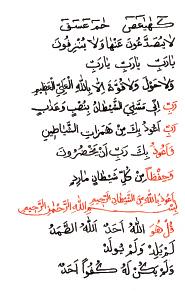 كهيعص حمعسق
لا يصدعون عنها ولا ينزفون
يارب يارب يارب
ولا حول ولا قوة إلا بالله العلي العظيم
رب أني مسني الشيطان بنصب وعذاب
رب أعوذ بك من همزات الشياطين
وأعوذ بك رب أن يحضرون
وحفظا من كل شيطان مارد
أعوذ بالله من الشيطان الرجيم بسم الله الرحمن الرحيم
قل هو الله أحد الله الصمد
لم يلد ولم يولد
ولم يكن له كفوا أحد